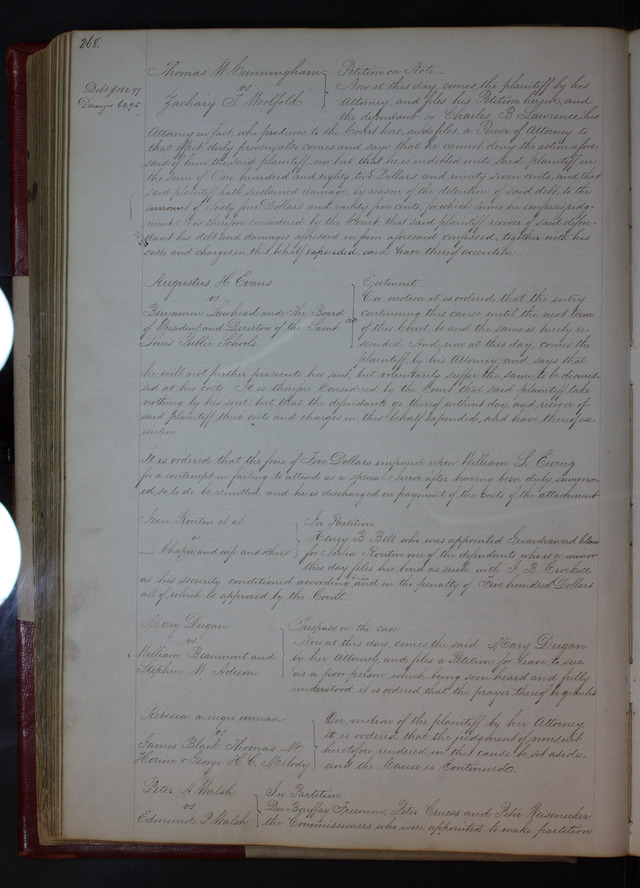 268.
Thomas W Cunningham } Petition on Note.
vs
Debt $182.97
Damages 64.95
Zachary T Woolfolk
Now at this day, comes the plaintiff by his
Attorney, and files his Petition herein, and
the defendant by Charles B Lawrence his
Attorney in fact, who produces to the Court here, and files, a Power of Attorney to
that effect duly proven, also comes and says that he cannot deny the action afore-
said of him the said plaintiff, nor but that he is indebted unto said plaintiff in
the sum of One hundred and eighty two Dollars and ninety seven cents, and that
said plaintiff hath sustained damage, by reason of the detention of said debt, to the
amount of Sixty four Dollars and ninety five cents, for which sums he confesses judg-
ment. It is therefore considered by the Court, that said plaintiff recover of said defen-
dant his debt and damages aforesaid in form aforesaid confessed, together with his
costs and charges in this behalf expended, and have thereof execution.
Augustus H Evans } Ejectment.
vs
Benjamin Lawhead and The Board
of President and Directors of the Saint
Louis Public Schools
On motion it is ordered that the entry
continuing this cause until the next term
of this Court, be and the same is hereby re-
scinded. And now at this day, comes the
plaintiff by his Attorney and says that
he will not further prosecute his suit, but voluntarily suffers the same to be dismis-
sed at his costs. It is therefore Considered by the Court that said plaintiff take
nothing by his suit, but that the defendants go thereof without day, and recover of
said plaintiff, their costs and charges in this behalf expended, and have thereof ex-
ecution.
It is ordered that the fine of Five Dollars imposed upon William L Ewing
for a contempt in failing to attend as a special Juror after having been duly Summon-
ed so to do be remitted, and he is discharged on payment of the Costs of the attachment
et al } In Partition
vs
and wife and others
Henry B Belt who was appointed Guardian ad litem
for one of the defendants who is a minor
this day files his bond as such, with J. B. Crockett
as his security conditioned according and in the penalty of Five hundred Dollars
all of which is approved by the Court.
Mary Dugan } Trespass on the case.
vs
William Beaumont and
Stephen W Adreon
Now at this day, comes the said Mary Dugan
by her Attorney, and files a Petition for leave to sue
as a poor person, which being seen heard and fully
understood, it is ordered that the prayer thereof be granted
Rebecca a negro woman
vs
James Black, Thomas W
Horine & George H. C. Melody
On motion of the plaintiff by her Attorney
it is ordered that the judgment of nonsuit
heretofore rendered in this cause be set aside,
and the Cause is Continued.
Peter A Walsh } In Partition
vs
Edmund P Walsh
De Bouffay Fremon, Peter and Peter Weisenecker
the Commissioners who were appointed to make partition